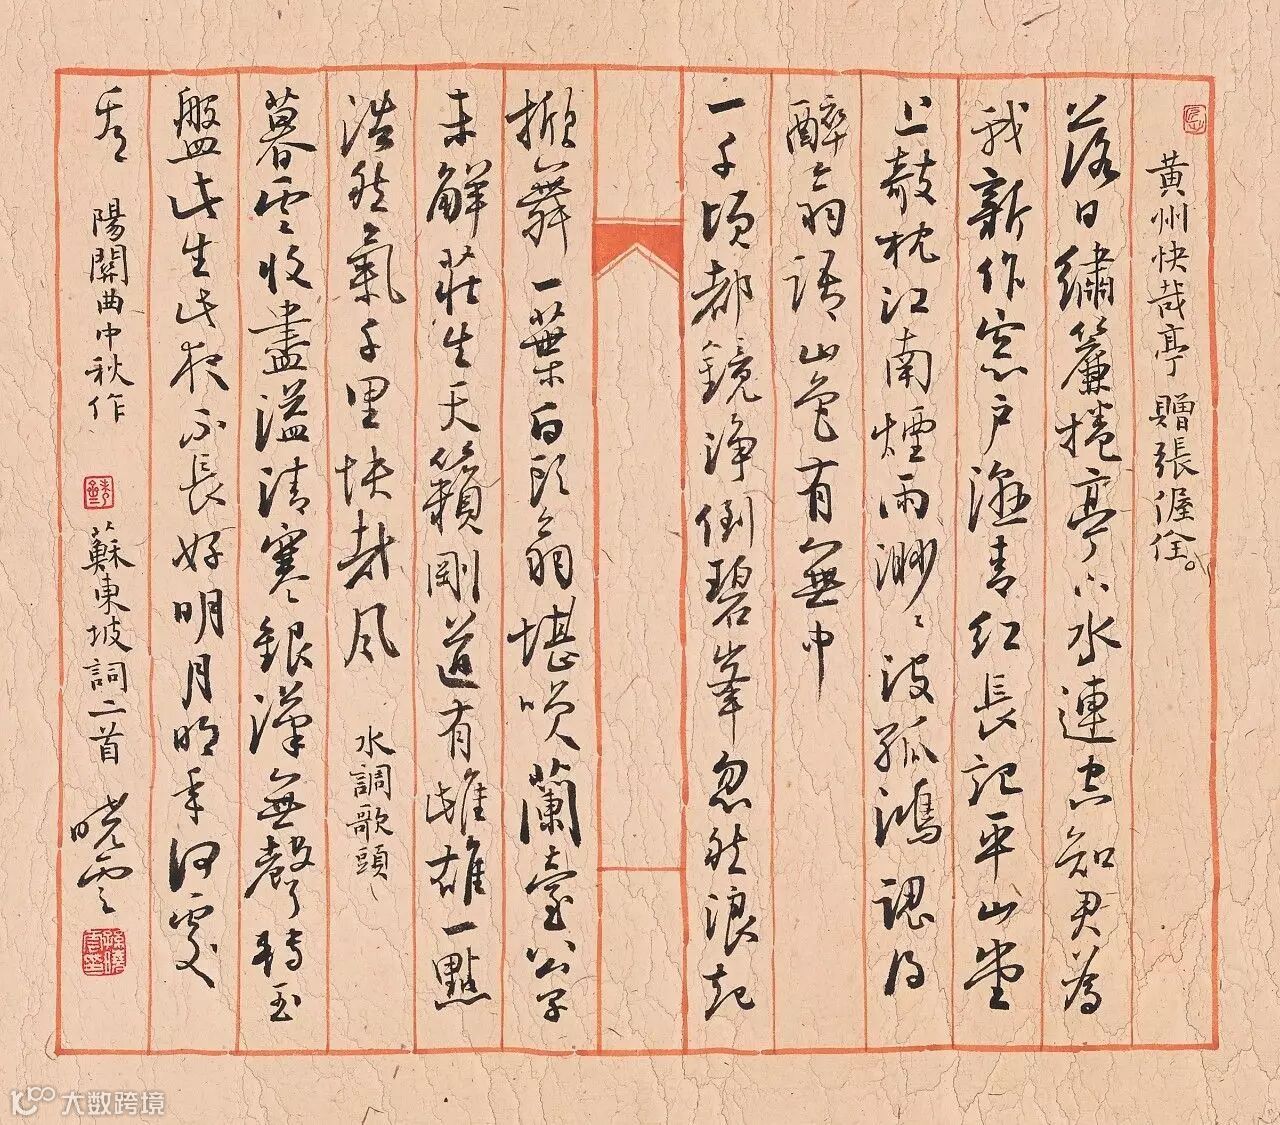 黄州快哉亭 贈張偓佺。
落日繡簾捲亭下水連空知君為
我新作窓戶濕青紅長記平山堂
上攲枕江南煙雨渺〻沒孤鴻認得
醉翁語山色有無中
一千頃都鏡淨倒碧峯忽然浪起
掀舞一葉白頭翁堪笑蘭臺公子
未解莊生天籟剛道有雌雄一點
浩然氣千里快哉風 水調歌頭
暮雲收盡溢清寒銀漢無聲轉玉
盤此生此夜不長好明月明年何處
看 陽關曲中秋作 蘇東坡詞二首 曉雲
孫曉雲印
大数跨境